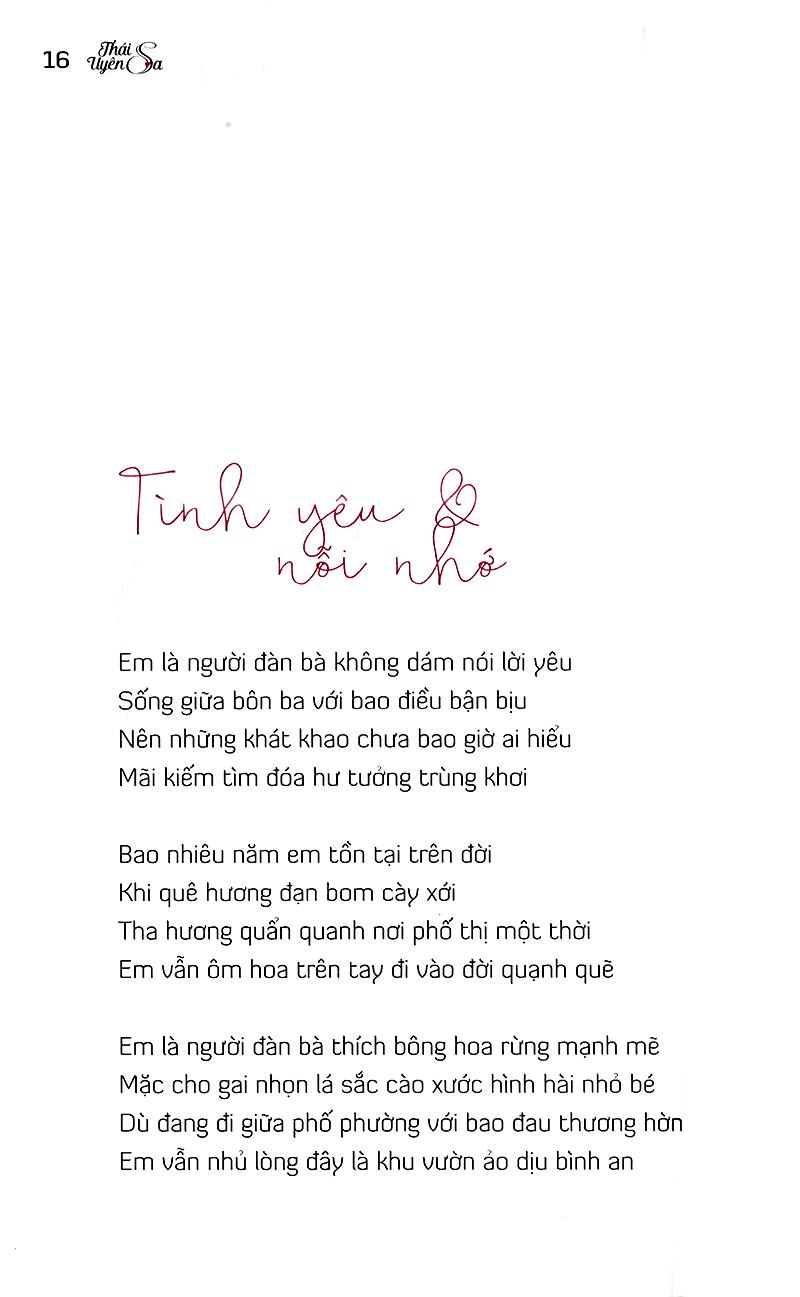 16 Thái
Uyên Sa
Tình yêu &
nỗi nhớ
Em là người đàn bà không dám nói lời yêu
Sống giữa bôn ba với bao điều bận bịu
Nên những khát khao chưa bao giờ ai hiểu
Mãi kiếm tìm đóa hư tưởng trùng khơi
Bao nhiêu năm em tồn tại trên đời
Khi quê hương đạn bom cày xới
Tha hương quẩn quanh nơi phố thị một thời
Em vẫn ôm hoa trên tay đi vào đời quạnh quẽ
Em là người đàn bà thích bông hoa rừng mạnh mẽ
Mặc cho gai nhọn lá sắc cào xước hình hài nhỏ bé
Dù đang đi giữa phố phường với bao đau thương hờn
Em vẫn nhủ lòng đây là khu vườn ảo dịu bình an